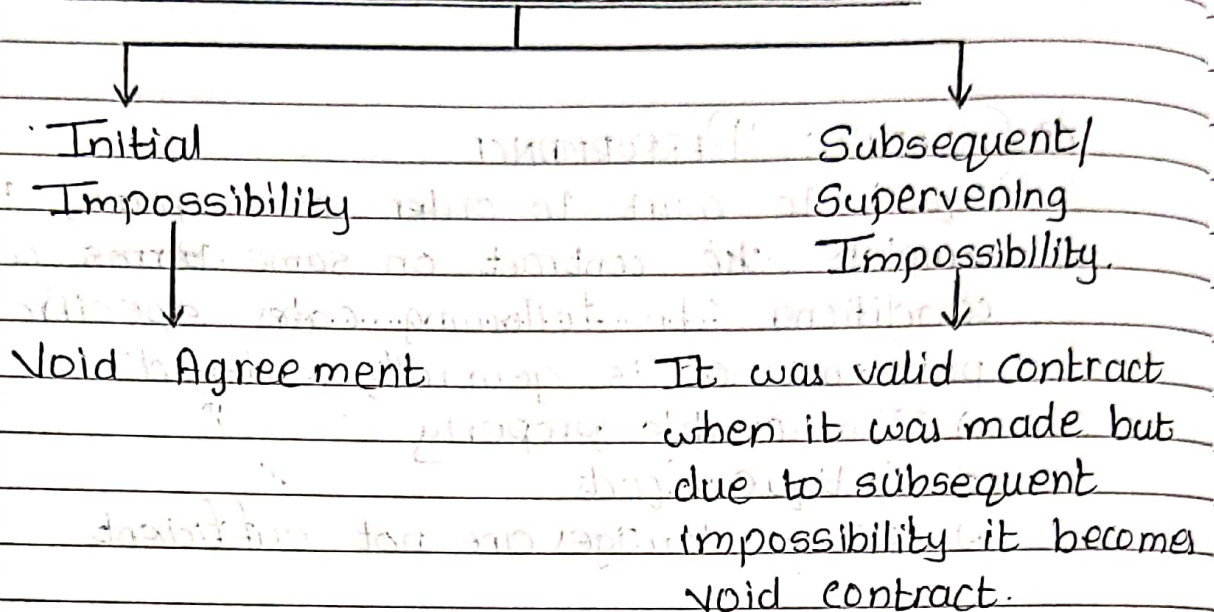 Initial
Impossibility
Void Agreement
Subsequent/
Supervening
Impossibility.
It was valid contract
when it was made but
due to subsequent
impossibility it becomes
void contract.